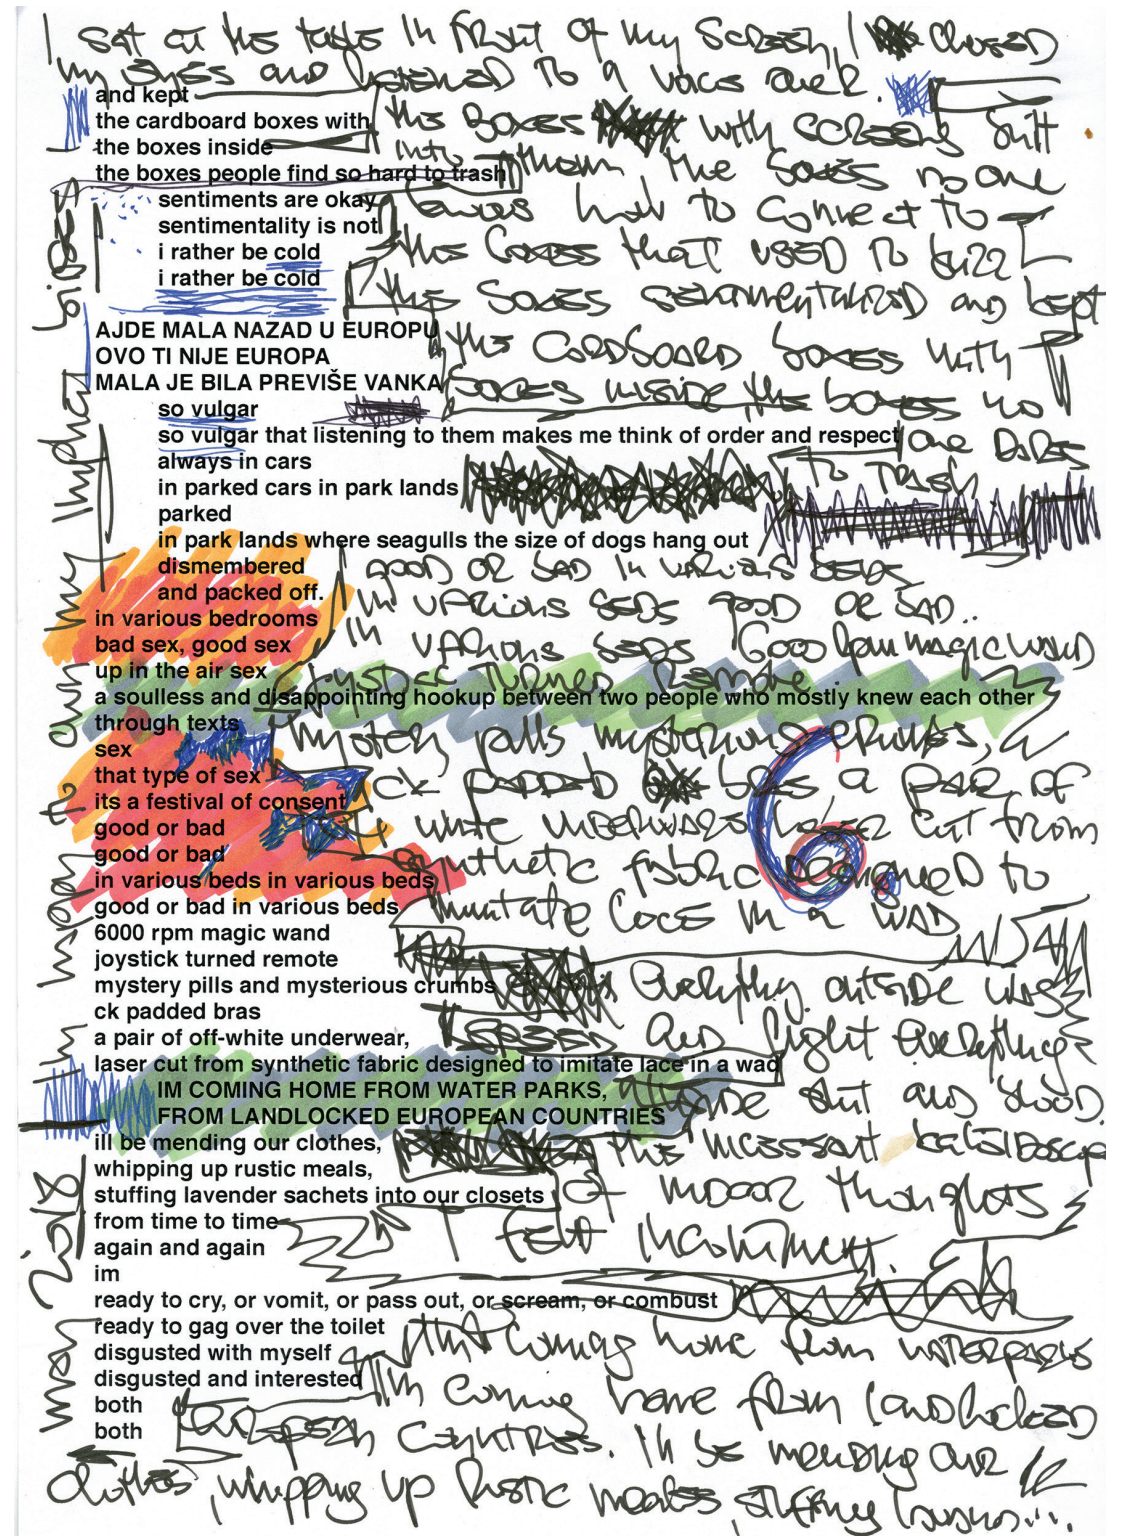 I sat at the table in front of my screen, I closed
my eyes and listened to a voice over.
and kept
the cardboard boxes with
the boxes inside
the boxes people find so hard to trash
sentiments are okay
sentimentality is not
i rather be cold
i rather be cold
AJDE MALA NAZAD U EUROPU
OVO TI NIJE EUROPA
MALA JE BILA PREVIŠE VANKA
so vulgar
so vulgar that listening to them makes me think of order and respect
always in cars
in parked cars in park lands
parked
in park lands where seagulls the size of dogs hang out
dismembered
and packed off.
in various bedrooms
bad sex, good sex
up in the air sex
a soulless and disappointing hookup between two people who mostly knew each other
through texts
sex
that type of sex
its a festival of consent
good or bad
good or bad
in various beds in various beds
good or bad in various beds
6000 rpm magic wand
joystick turned remote
mystery pills and mysterious crumbs
ck padded bras
a pair of off-white underwear,
laser cut from synthetic fabric designed to imitate lace in a wad
IM COMING HOME FROM WATER PARKS,
FROM LANDLOCKED EUROPEAN COUNTRIES
ill be mending our clothes,
whipping up rustic meals,
stuffing lavender sachets into our closets
from time to time
again and again
im
ready to cry, or vomit, or pass out, or scream, or combust
ready to gag over the toilet
disgusted with myself
disgusted and interested
both
both
the boxes with screens built
into them, the boxes no one
knows how to connect to
the boxes that used to buzz
the boxes sentimentalized and kept
the cardboard boxes with
boxes inside, the boxes no
one dares
to trash
good or bad in various beds
in various beds good or bad..
in various beds 6000 rpm magic wand
joystick turned remote
mystery pills mysterious crumbs,
ck padded bras a pair of
white underwear laser cut from
synthetic fabric designed to
immitate lace in a wad
6.
everything outside was
and light everything
inside shit and blood.
the incessant kaleidoscope
of indoor thoughts
I felt incontinent.
I'm coming home from waterparks
I'm coming home from landlocked
European countries. I'll be mending our
clothes, whipping up rustic meales, stuffing